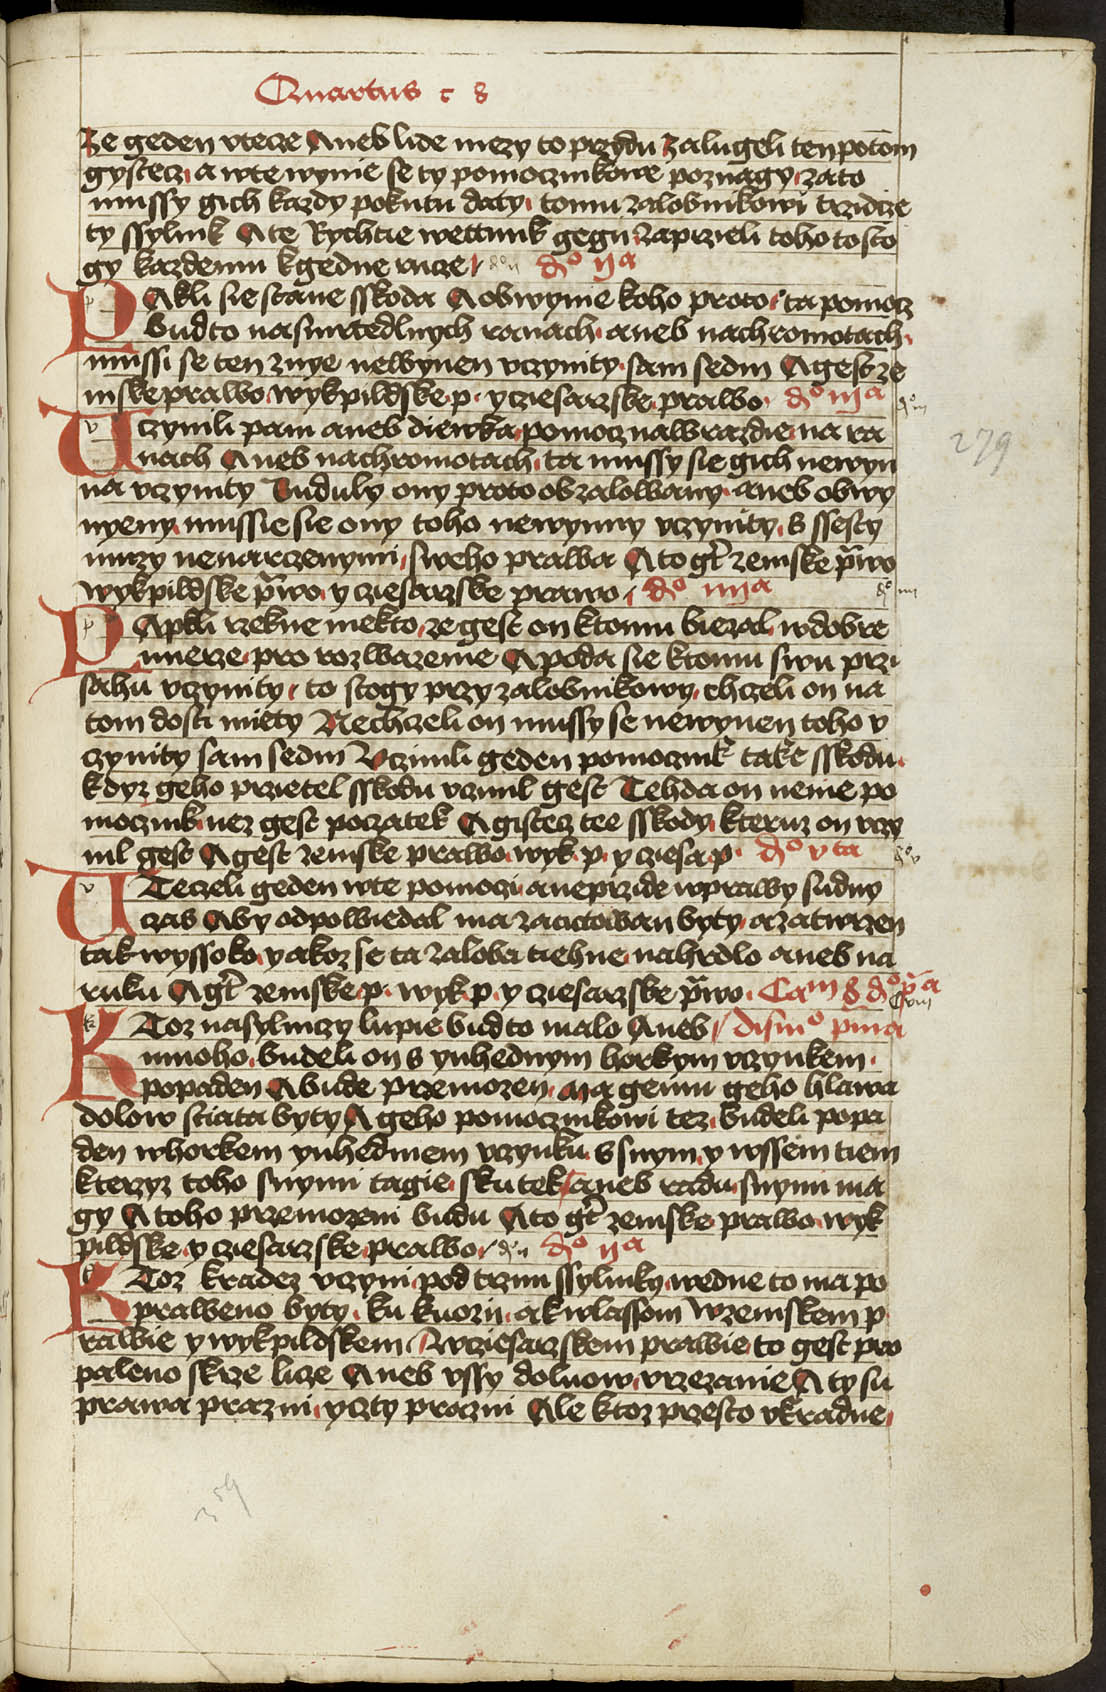 Quartus c 8
Ze geden vtecze Aneb lide mezy to przydu Zalugeli ten potom
gystecz a wte wynie se ty pomocznikowe poznagy zato
mussy gich kazdy pokutu daty tomu zalobnikowi trzidcze
ty ssylink A te Rychtie wettunk gegu zaprzieli toho tosto
gy kazdemu kgedne rucze d° ii d° ija
P Akli sie stane sskoda A obwynie koho proto ta pomocz
Budto nasmrtedlnych ranach aneb nachromotach
mussi se ten znye newynen vczynity sam sedm A gest ze
mske prawo wykpildske p yciesarzske prawo d° iija d° iii
V czynili pani aneb diewka pomocz nawrazdie na ra
nach Aneb nachromotach ta mussy sie gich newyn
na vczynity Buduly ony proto obzalowany aneb obwy
nyeny mussie sie ony toho newynny vczynity s ssesty
muzy nenarczenymi sweho prawa A to gt zemske pwo
wykpildske pwo y ciesarzske prawo d° iiija d° iiii
P Akli rzekne niekto ze gest on ktomu biezal wdobre
mierze pro rozwazenie A poda sie ktomu swu przi
sahu vczynity to stogy przy zalobnikowy chczeli on na
tom dosti miety Nechczeli on mussy se newynen toho v
czynity sam sedm Vczinili geden pomocznik take sskodu
kdyz geho przietel sskodu vczinil gest Tehda on nenie po
mocznik nez gest poczatek A gistecz tee sskody kteruz on vczy
nil gest A gest zemske prawo wyk p y ciesa p d° v ta d° v
V Teczeli geden wte pomoczi aneprzide wprawy sudny
czas Aby odpowiedal ma zacitowan byty azatwrzen
tak wyssoko yakoz se ta zaloba tiehne nahrdlo aneb na
ruku A gt zemske p wyk p y ciesarzske pwo Cam 8 d° pa
K Toz nasylniczy lupie budto malo Aneb / disino pma C viii
mnoho budeli on s ynhednym horkym vczynkem
popaden A bude przemozen ma gemu geho hlawa
dolow sciata byty A geho pomocznikowi tez budeli popa
den whorkem ynhedniem vczynku s snym y wssem tiem
kteryz toho snymi tagie skutek aneb radu snymi ma
gy A toho przemozeni budu A to gt zemske prawo wyk
pildske y ciesarzske prawo d° ii d° ija
K Toz kradez vczyni pod trzmi ssylinky wedne to ma po
praweno byty ku kuozii akwlassom Wzemskem p
rawie y wykpildskem Wciesarzskem prawie to gest pro
paleno skrze licze Aneb vssy doluow vrzezanie A ty su
prawa prazni yczty prazni Ale ktoz przesto vkradne
279